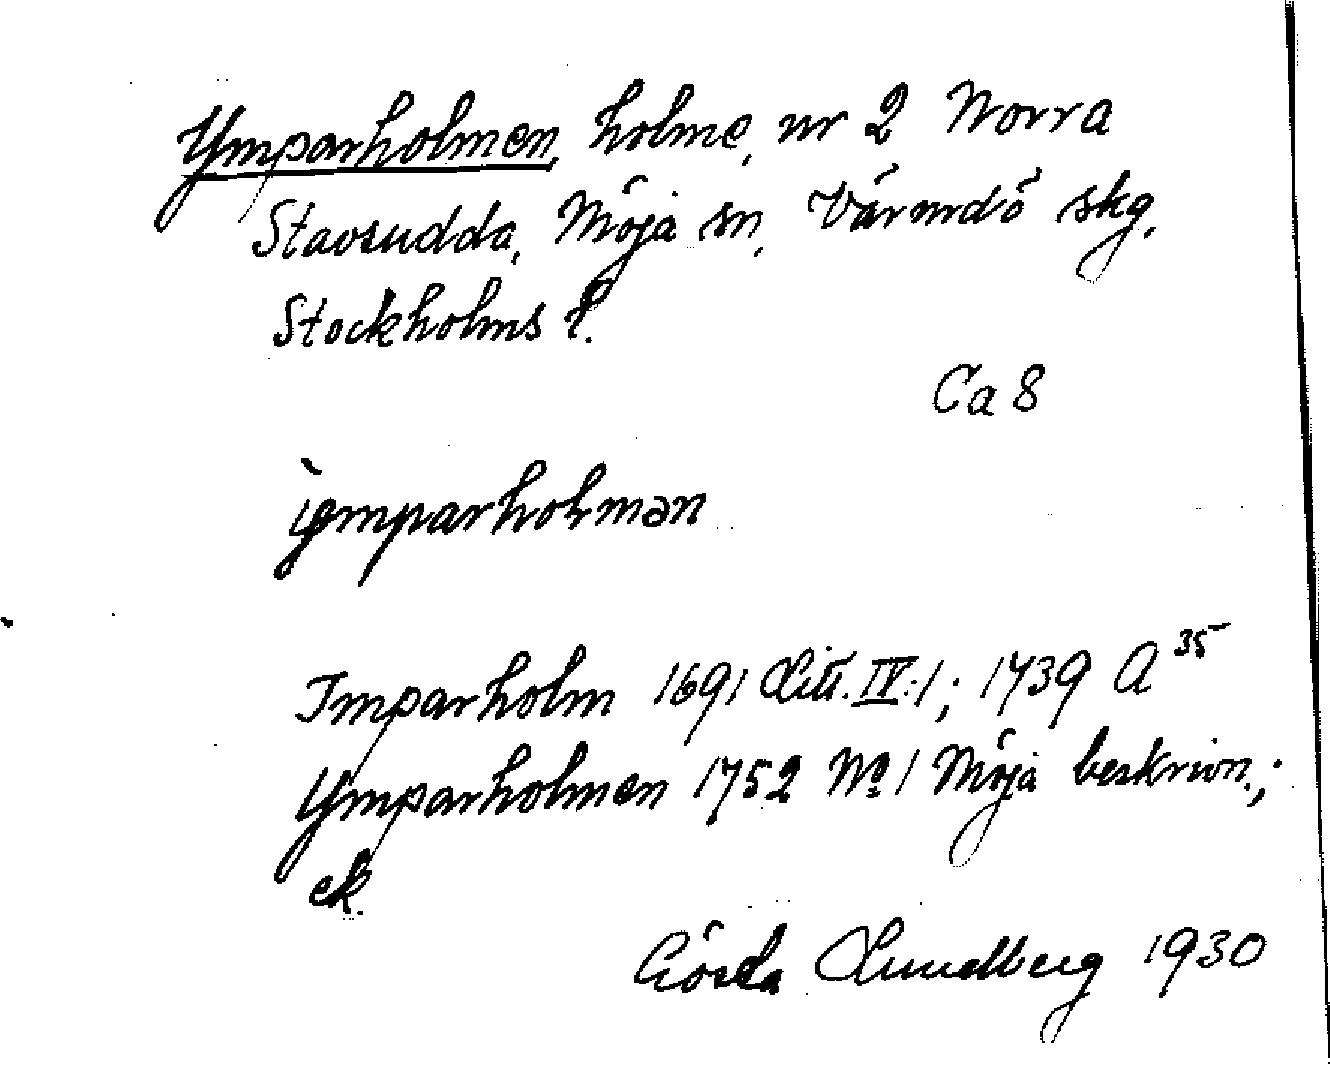 Ymparholmen, holme, nr 2 Norra
Stavsudda, Möja sn, Värmdö skg,
Stockholms l.
Ca 8
Imparholm 1691 Litt. IV:1; 1739 A 35
Ymparholmen 1752 No 1 Möja beskrivn.;
ek.
Gösta Lundberg 1930